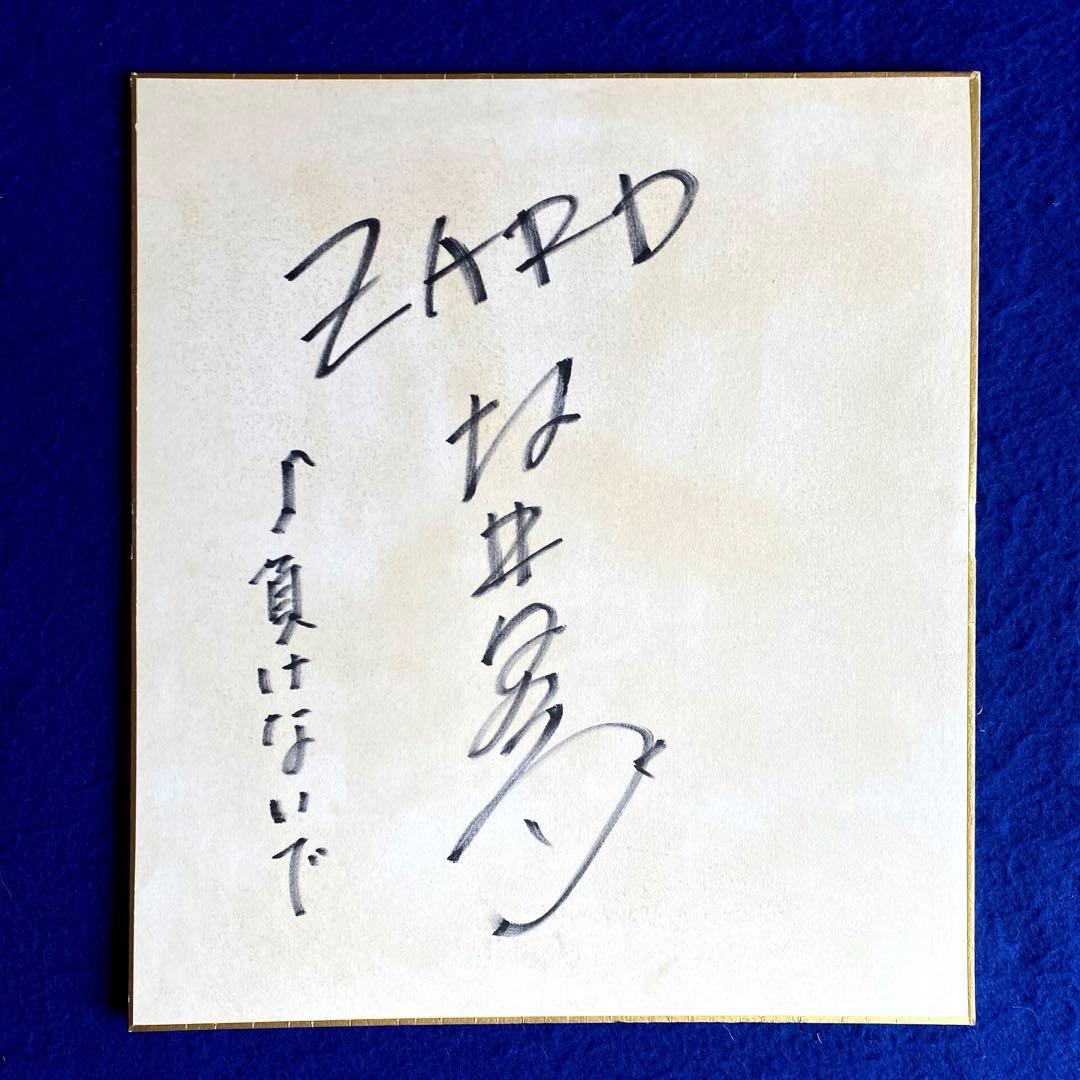 ZARD
坂井泉水
♪負けないで